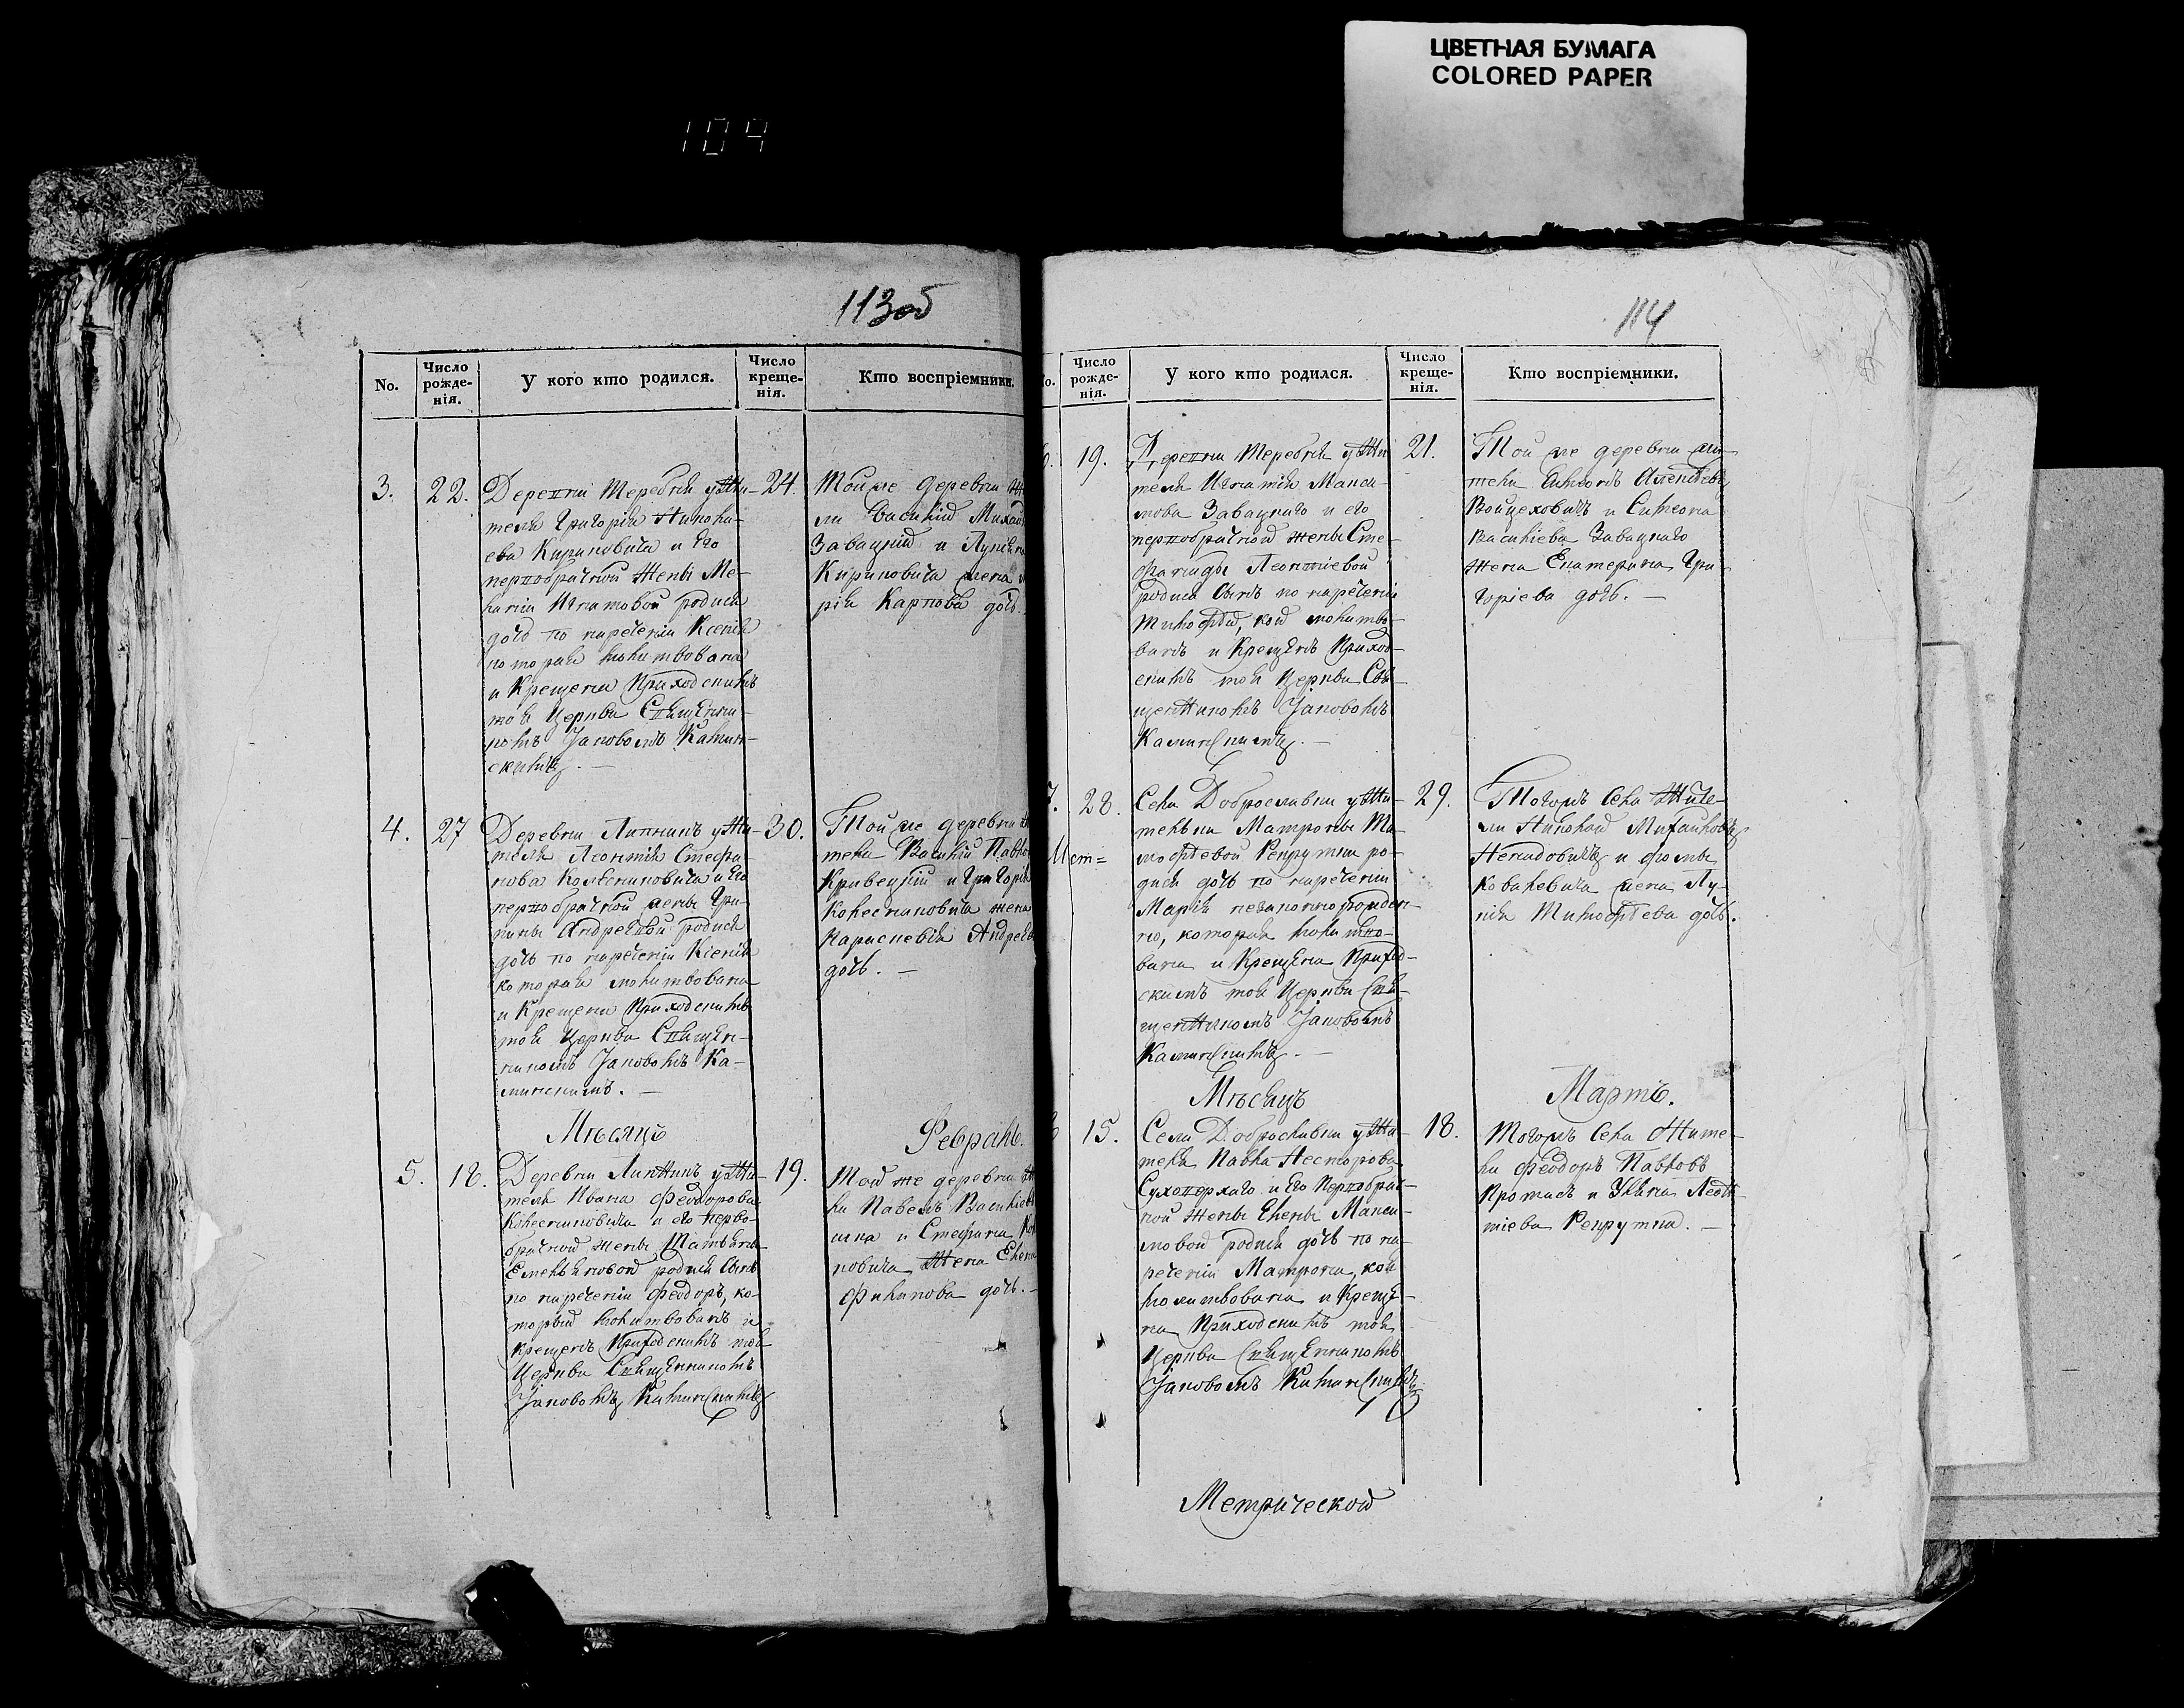 ЦВЕТНАЯ БУМАГА
COLORED PAPER
104
113об
No.
Число рожде-нія.
У кого кто родился.
Число креще-нія.
Кто воспріемники.
3.
22.
Деревни Теребни у жи-
теля Григорія Никола-
ева Кириковича и его
первобрачной жены Ме-
ланіи Игнатовой родися
дочь по нареченіи Ксенія
которая молитвована
и крещена Приходскимъ
тоя Церкви Священни-
комъ Іаковомъ Камин-
скимъ. —
24.
Той же деревни
ли Василій Михай
Завацкій и Лукіяна
Кириковича жена
рія Карпова дочь.
4.
27
Деревни Липникъ у жи-
теля Леонтія Стефа-
нова Колесниковича и его
первобрачной жены Ири-
ны Андреевой родися
дочь по нареченіи Ксенія
которая молитвована
и крещена Приходскимъ
тоя Церкви Священ-
никомъ Іаковомъ Ка-
минскимъ. —
30.
Той же деревни
тели Василій Павло
Кривецкій и Григорія
Колесниковича жена
Параскевія Андреева
дочь. —
Мѣсяцъ
Февраль.
5.
18.
Деревни Липникъ у жи-
теля Ивана Феодорова
Колесниковича и его перво-
брачной жены Татьяны
Емельяновой родися сынъ
по нареченіи Феодоръ, ко-
торый молитвованъ и
крещенъ Приходскимъ тоя
Церкви Священникомъ
Іаковомъ Каминскимъ
19.
Той же деревни
ли Павелъ Василіев
и Стефана
новича жена Елена
Филипова дочь. —
114
Число рожде-нія.
У кого кто родился.
Число креще-нія.
Кто воспріемники.
19.
Деревни Теребни у жи
теля Игнатія Макси-
мова Завацкаго и его
первобрачной жены Сте-
фаниды Леонтіевой
родися сынъ по нареченіи
Тимофей, кой молитво-
ванъ и крещенъ Приход-
скимъ тоя Церкви Свя-
щенникомъ Іаковомъ
Каминскимъ. —
21.
Той же деревни жи-
тели
Войцеховичъ и Симеона
Василіева Завацкаго
жена Екатерина Гри-
горіева дочь. —
28.
Мет=
Села Доброславки у жи-
тельки Матроны Ти-
мофеевой Рекрутки ро-
дися дочь по нареченіи
Марія незаконнорожден-
но, которая молитво-
вана и крещена Приход-
скимъ тоя Церкви Свя-
щенникомъ Іаковомъ
Каминскимъ. —
29.
Тогожъ села жите-
ли Николай Михайловъ
Ненадовичъ и Фомы
Ковалевича жена Лу-
кія Тимофеева дочь.
Мѣсяцъ
Мартъ.
15.
Села Доброславки у жи-
теля Павла Несторова
Сухоперхаго и его первобрач-
ной жены Елены Макси-
мовой родися дочь по на-
реченіи Матрона, коя
молитвована и креще-
на Приходскимъ тоя
Церкви Священникомъ
Іаковомъ Каминскимъ
18.
Тогожъ села жите-
ли Феодоръ Павловъ
и Улляна Леон-
тіева Рекрутка. —
Метрической